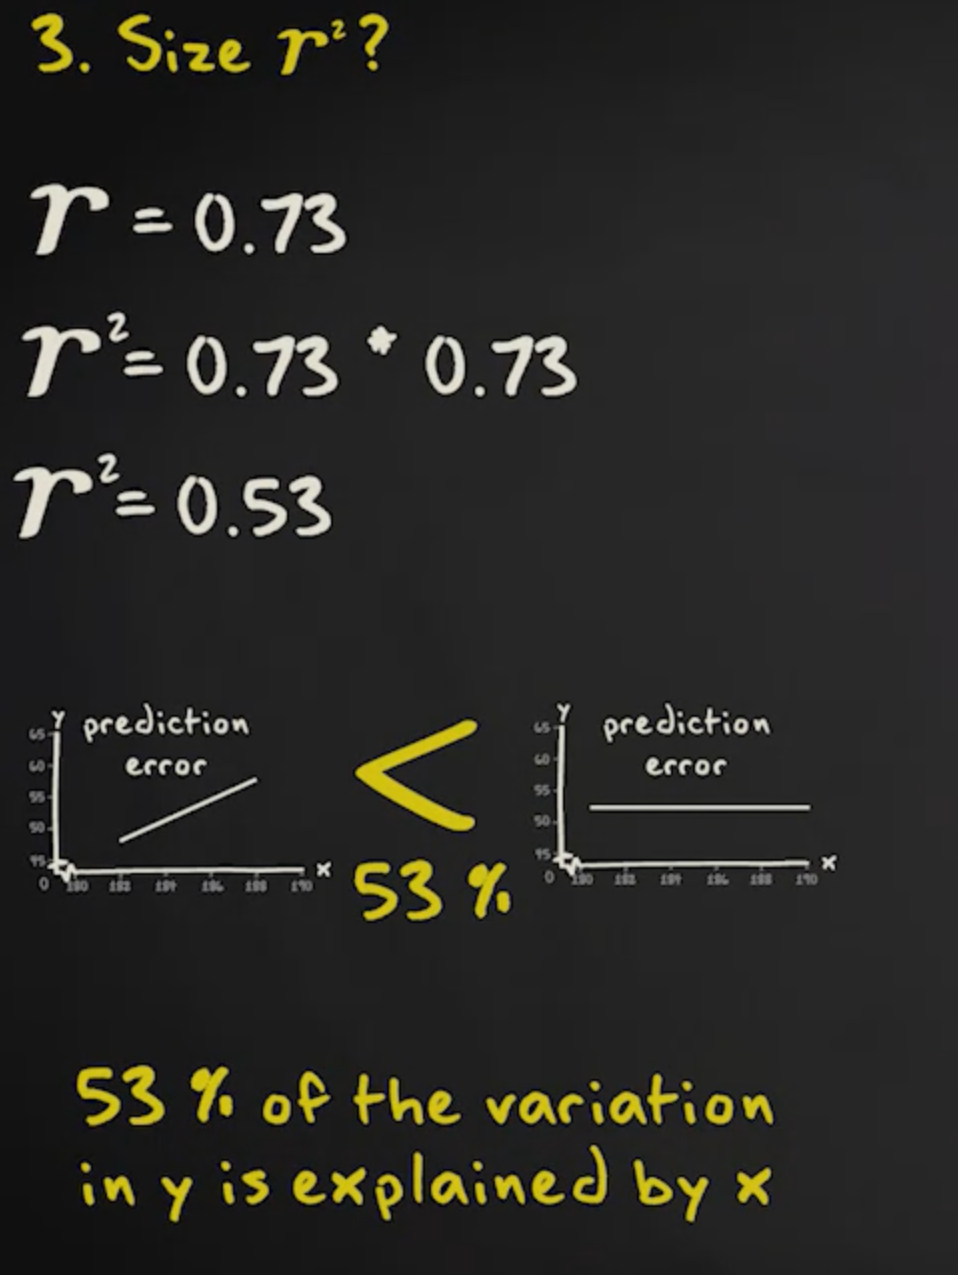 3. Size r²?
r = 0.73
r² = 0.73 * 0.73
r² = 0.53
y prediction
error
65
60
55
50
45
0 180 182 184 186 188 190 x
<
53 %
y prediction
error
65
60
55
50
45
0 180 182 184 186 188 190 x
53 % of the variation
in y is explained by x